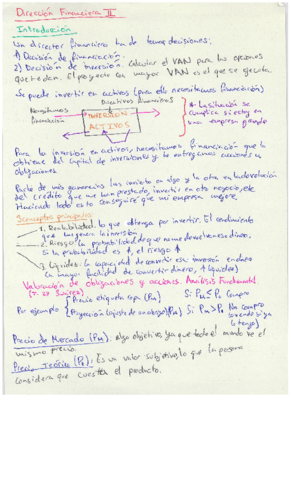 Dirección Financiera II
Introducción
Un director financiero ha de tomar decisiones.
1) Decisión de financiación.
2) Decisión de Inversión. Calcular el VAN para las opciones
que tengamos. El proyecto con mayor VAN es el que se ejecuta.
Se puede invertir en activos (para ello necesitamos financiación)
Directivos financieros
Necesitamos financiación
INVERSIÓN ACTIVOS
* La situación se complica si estoy en una empresa grande
Para la inversión en activos, necesitamos financiación que la
obtienes del capital de inversionista y le entregamos acciones u
obligaciones.
Parte de mis ganancias las invierto en algo y la otra en la devolución
del crédito que me han prestado, invertir en otro negocio, etc
Haciendo todo esto conseguiré que mi empresa mejore.
3 conceptos principales:
1. Rentabilidad: lo que obtengo por invertir. El rendimiento
que tengo en la inversión.
2. Riesgo: la probabilidad de que no me devuelvan ese dinero.
Si la probabilidad es ↑, el riesgo ↑
3. Liquidez: la capacidad de convertir esa inversión en dinero
(a mayor facilidad de convertir dinero, ↑ liquidez)
Valoración de obligaciones y acciones. Análisis Fundamental
(T. 22 Suárez)
Por ejemplo
Precio etiqueta ropa (PM) Si PM ≤ PO Compro
(PO) Si PM > PO No compro
(o vendo si ya lo tengo)
Precio de Mercado (PM). Algo objetivo, ya que todo el mundo ve el
mismo precio
Precio Teórico (PO): Es un valor subjetivo, lo que la persona
considera que cuesta el producto.